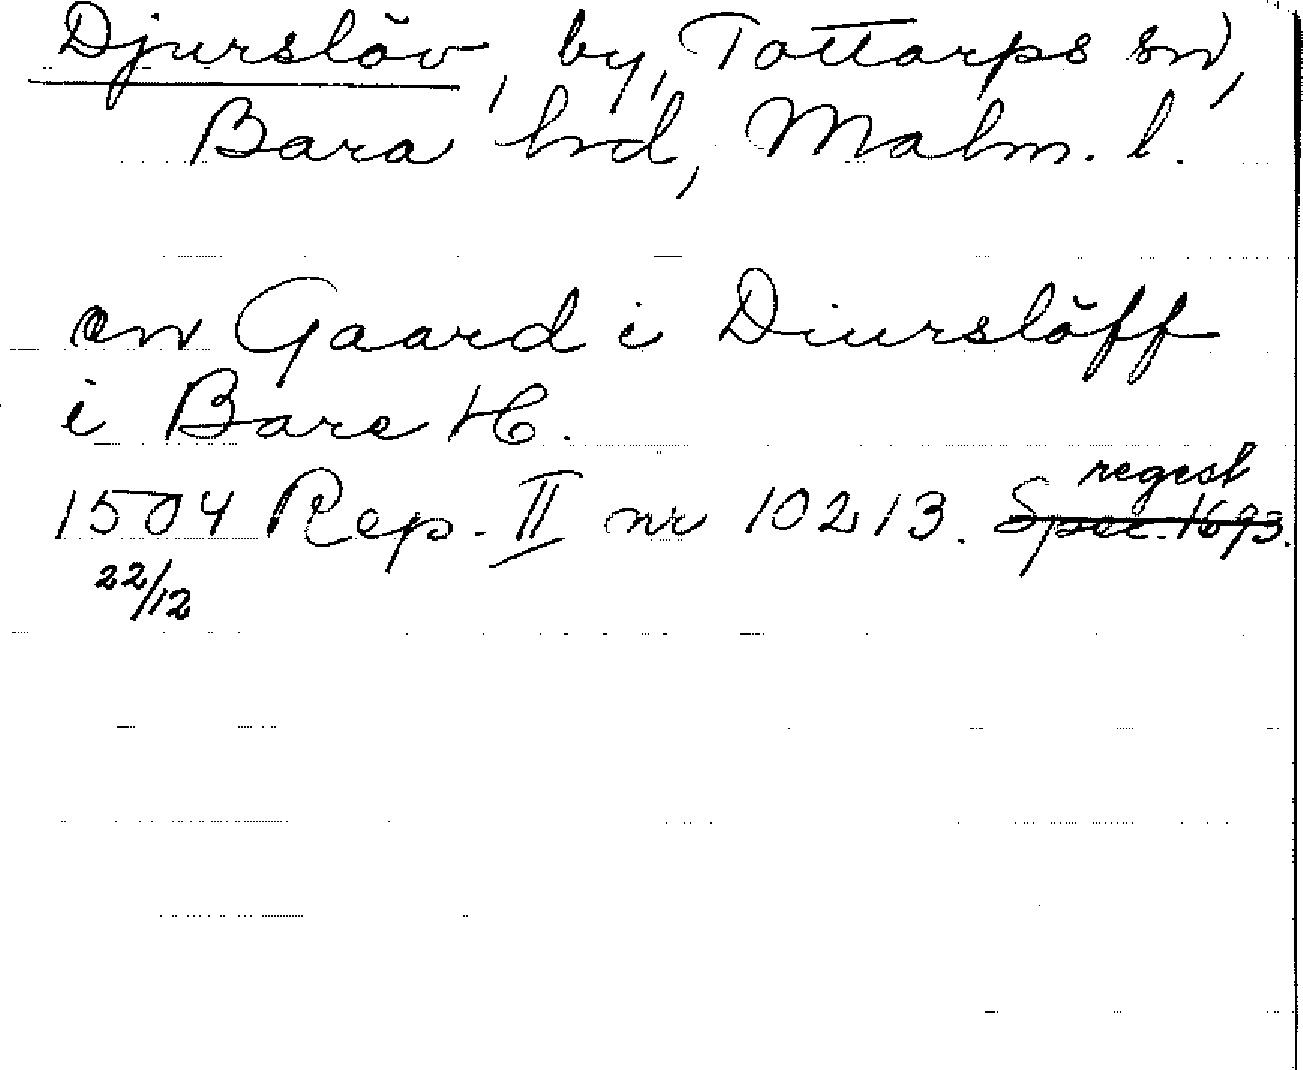 Djurslöv, by, Tottarps sn,
Bara hrd, Malm. l.
en Gaard i Diurslöff
i Bare H.
regest
1504 Rep. II nr 10213. Spec. 1693.
22/12